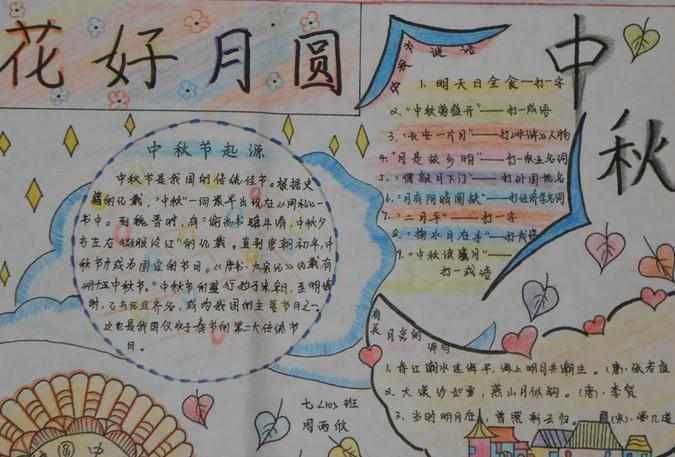 花好月圆
中秋
中秋节起源
中秋节是我国的传统佳节。根据史
籍的记载，“中秋”一词最早出现在《周礼》一
书中。到魏晋时，有“谕尚书镇牛渚，中秋夕
与左右微服泛江”的记载。直到唐朝初年，中
秋节才成为固定的节日。《唐书·太宗记》记载有
“中秋节”。中秋节的盛行始于宋朝，至明清
时，已与元旦齐名，成为我国的主要节日之一。
这也是我国仅次于春节的第二大传统节
日。
谜语
1. 明天日全食—打一字
2. “中秋菊盛开”——打一成语
3. “长安一片月”——打人物
4. “月是故乡明”——打一名词
5. “僧敲月下门”——打外国地名
6. “月有阴晴圆缺”——打经济学名词
7. “二月平”——打一字
8. “掬水月在手”——打成语
9. “中秋赏月”——
打一成语
有关月亮的诗句
1. 春江潮水连海平，海上明月共潮生。(唐·张若虚
2. 大漠沙如雪，燕山月似钩。(唐)·李贺
3. 当时明月在，曾照彩云归。 (宋)·晏几道
七<10>班
周雨欣
中